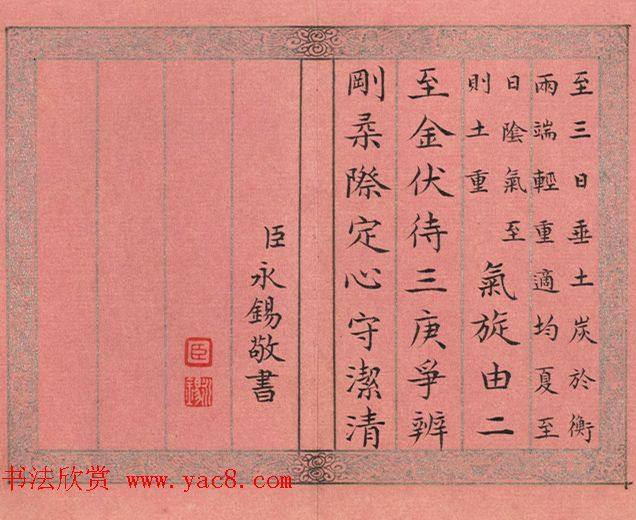 至三日垂土炭於衡
兩端輕重適均夏至
日陰氣至
則土重
氣旋由二
至金伏待三庚爭辨
剛柔際定心守潔清
臣永錫敬書
臣
永錫
书法欣赏 www.yac8.com